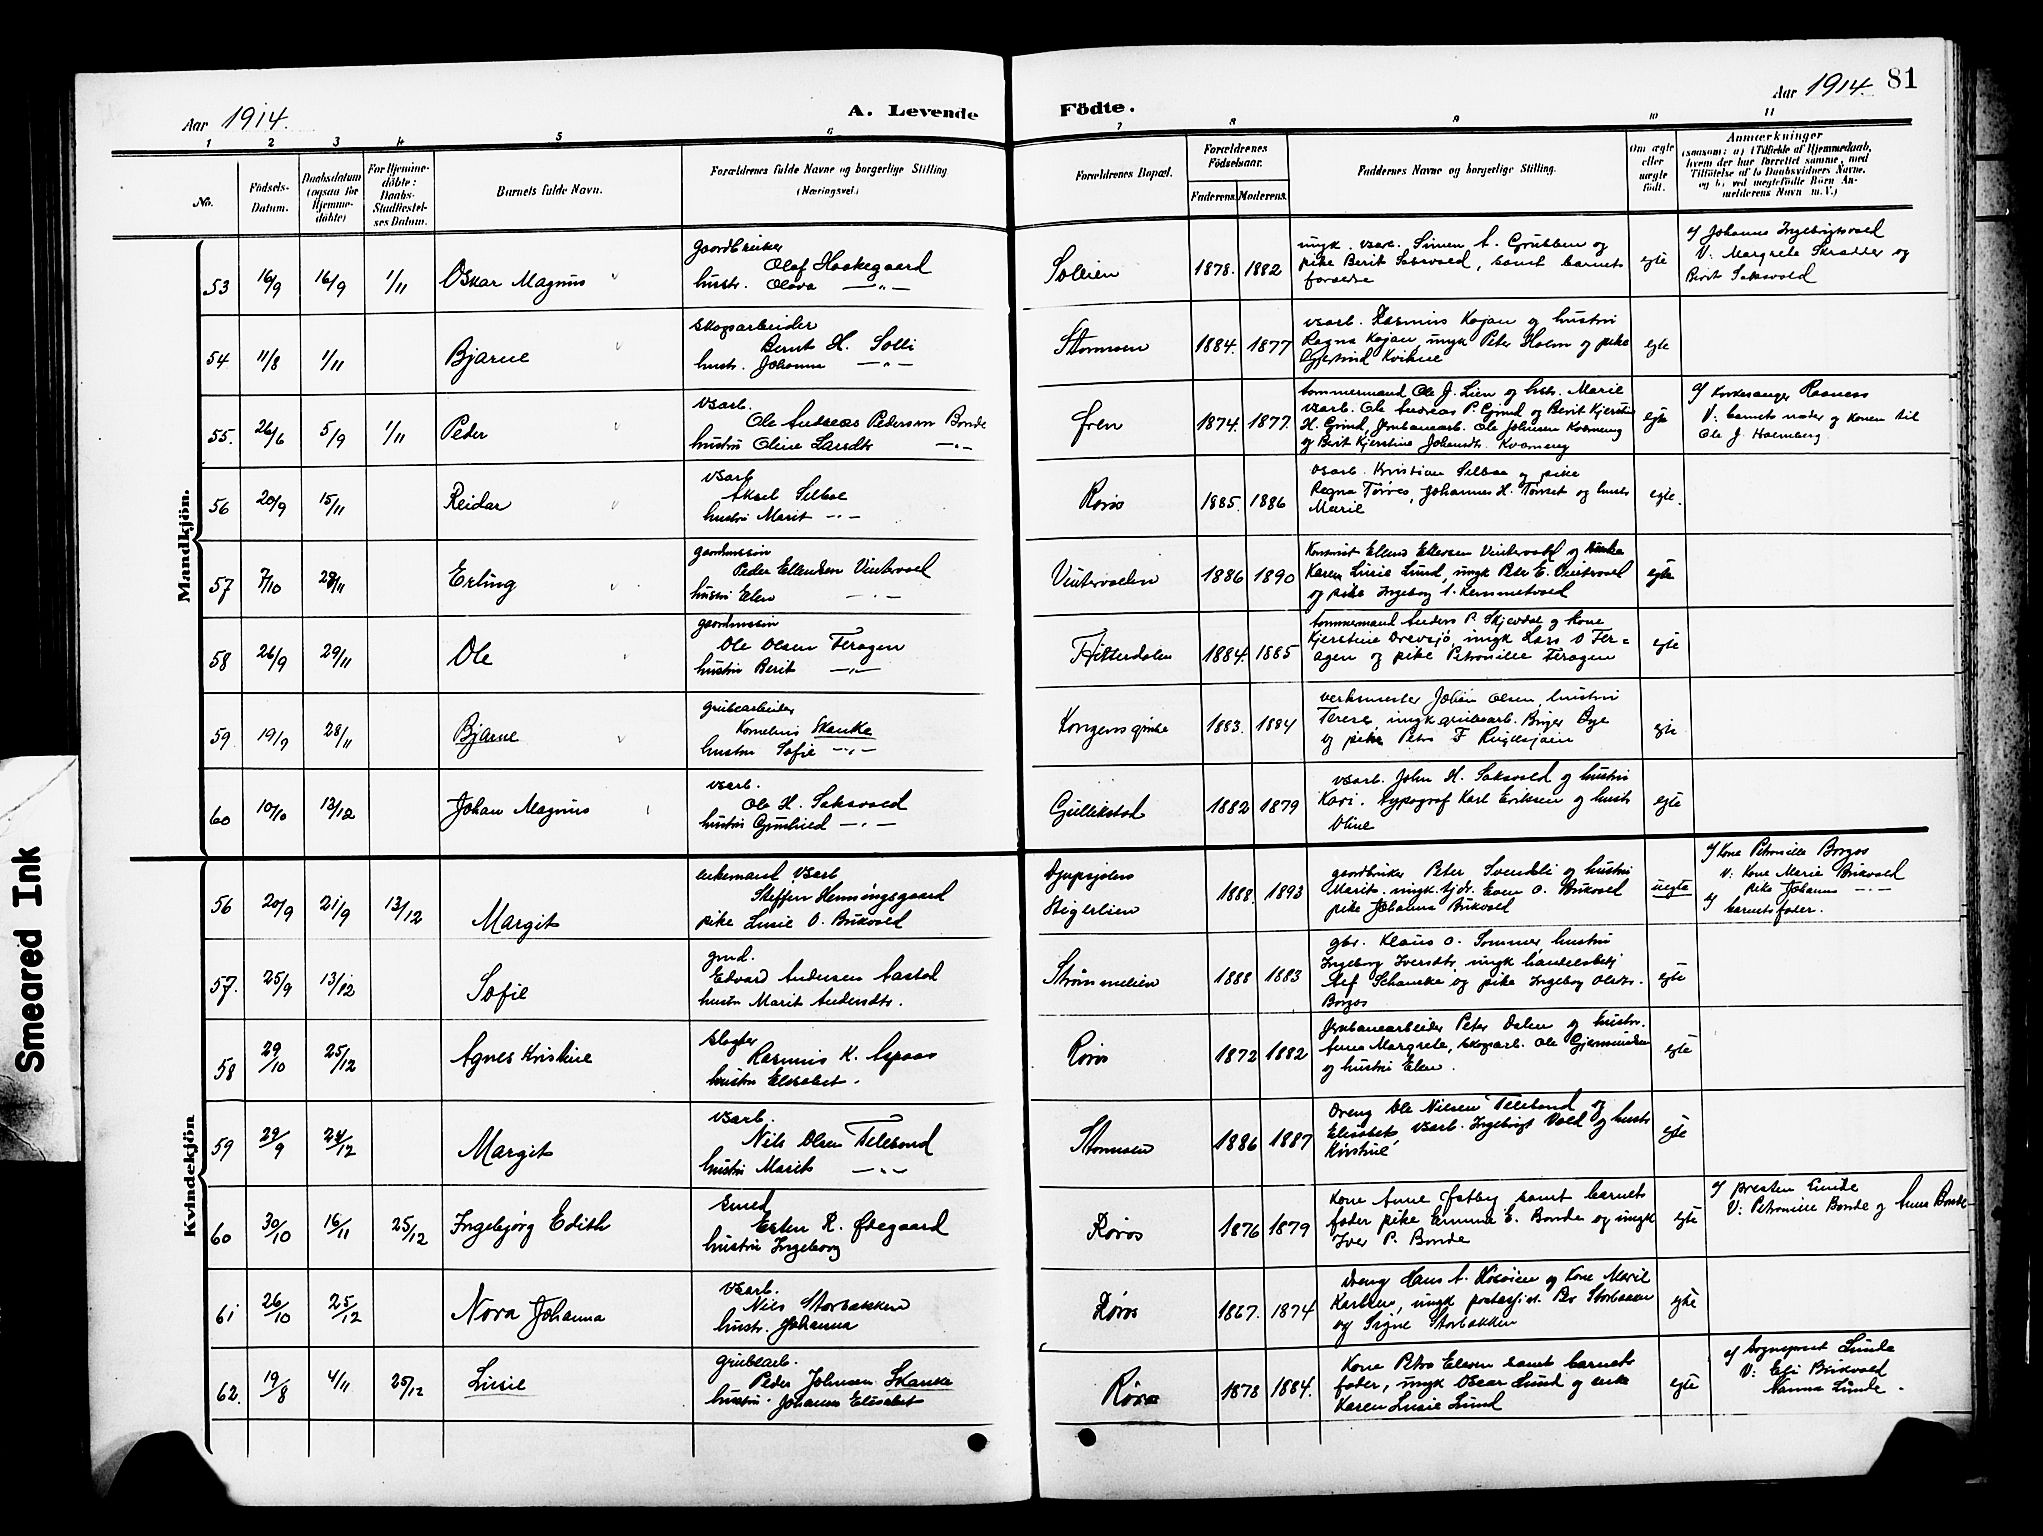 81
Aar 1914.
A. Levende
Födte.
Aar 1914.
1 2 3 4 5 6 7 8 9 10 11
No.
Födsels-
Datum.
Daabsdatum
(ogsaa for
Hjemme-
döbte)
For Hjemme-
döbte:
Daabs-
Stadfæstel-
ses Datum.
Barnets fulde Navn.
Forældrenes fulde Navne og borgerlige Stilling
(Næringsvei.)
Forældrenes Bopæl.
Forældrenes
Födselsaar.
Faderens. Moderens.
Faddernes Navne og borgerlige Stilling.
Om ægte
eller
uægte
födt.
Anmærkninger
(saasom: a) i Tilfælde af Hjemmedaab,
hvem der har forrettet samme, med
Tilföielse af to Daabsvidners Navne,
og b) ved uegtefödte Börn An-
melderens Navn m. V.)
Mandkjön.
53 16/9 16/9 1/11 Oskar Magnus
gaardbruker
Olaf Haakegaard
hustr. Olava —"—
Soleien 1878. 1882
ungk. vsarb. Simen A. Grubben og
pike Berit Saksvold, samt barnets
forældre
egte
af Johannes Ingebrigtsvold
V: Margrete Skrædder og
Berit Saksvold
54 11/8 1/11 Bjarne
skogsarbeider
Bernt H. Solli
hustr. Johanna —"—
Stormoen 1884. 1877
vsarb. Rasmus Kojan og hustru
Ragna Kojan, ungk Peter Holm og pike
Gjertrud Kvikne
egte
55. 26/6 5/9 1/11 Peder
vsarb.
Ole Andreas Pedersen Bonde
hustru Oline Larsdtr —"—
Øren 1874. 1877.
tømmermand Ole J. Lien og hstr. Marie
vsarb. Ole Andreas P. Grind og Berit Kjerstine
H. Grind, Jernbanearb. Ole Johnsen Kvarneng
og Berit Kjerstine Johansdtr. Kvarneng
egte
af kirkesanger Raaness
V: barnets moder og konen til
Ole J. Holmberg.
56 20/9 15/11 Reidar
vsarb
Aksel Selboe
hustru Marit —"—
Røros 1885. 1886
vsarb. Kristian Selboe og pike
Ragna Torres, Johannes H. Tamset og hustr
Marie
egte.
57 7/10 28/11 Erling
gaardmssøn
Peder Ellendsen Vintervold
hustru Elen —"—
Vintervolen 1886 1890
Karen Lusie Lund, ungk Peter E. Vintervold
og pike Ingeborg A. Remmetvold
egte
58 26/9 29/11 Ole
gaardmssøn
Ole Olsen Feragen
hustru Berit —"—
Hitterdalen 1884. 1885
tømmermand Anders P. Skjevdal og kone
Kjerstine Drevsjø, ungk Lars O Fer-
agen og pike Petronille Feragen
egte
59 19/9 28/11 Bjarne
grubearbeider
Kornelius Skanke
hustru Sofie —"—
Kongensgrube 1883. 1884
verksmester Johan Olsen, hustru
Terese, ungk grubearb. Birger Øye
og pike Petra F
egte
60 10/10 13/12 Johan Magnus
vsarb.
Ole H. Saksvold
hustru Gunhild —"—
Gullikstad 1882 1879
vsarb. John H. Saksvold og hustru
Kari. typograf Karl Eriksen og hustr
Oline
egte
Kvindekjön
56 20/9 21/9 13/12 Margit
enkemand, vsarb
Steffen Henningsgaard
pike Lusie O. Bukvold
Djupsjølien
Stigerlien 1888. 1893
gaardbruker Peter Svendli og hustru
Marit. ungk. tjdr. Even O. Bukvold
pike Johanna Bukvold
uegte
af Kone Petronille Borgos
V: Kone Marie Bukvold
pike Johanna —"—
af barnets fader.
57. 25/9 13/12 Sofie
gmd.
Edvard Andersen Aastad
hustr Marit Andersdtr.
Strømmelien 1888 1883
gbr. Klaus O. Sommer hustru
Ingeborg Iversdtr, ungk handelsbetj
Alf Schancke og pike Ingeborg Olsdtr.
Borgos
egte
58 29/10 25/12 Agnes Kristine
slagter
Rasmus K. Aspaas
hustru Elisabet.
Røros 1872 1882
Jernbanearbeider Peter Dalen og hustr.
Anna Margrete, skogsarb. Ole Gjermundsen
og hustru Elen.
egte
59 29/9 24/12 Margit
vsarb.
Nils Olsen Feilebond
hustru Marit —"—
Stormoen 1886 1887
Dreng Ole Nilsen Feilebond og
Elisabet, vsarb. Ingebrigt Vold og hustr
Kirstine
egte
60 30/10 16/11 25/12 Ingebjørg Edith
smed
Esten R. Ødegaard
hustru Ingeborg
Røros 1876 1879
Kone Anne Østby samt barnets
fader pike Emma E. Bonde og ungk
Iver P. Bonde
egte
af presten Lunde
V: Petronille Bonde og Anna Bonde
61 26/10 25/12 Nora Johanna
vsarb.
Nils Storbakken
hustr. Johanna
Røros 1867. 1874
Dreng Hans A. Høsøien og Kone Marie
Karlsen, ungk Per Storbakken
og Signe Storbakken
egte
62. 19/8 4/11 25/12 Lusie
grubearb.
Peder Johnsen Skanke
hustru. Johanna Elisabet
Røros 1878 1884.
Kone Petra Elven samt barnets
fader, ungk Oscar Lund og enke
Karen Lusie Lund
egte
af Sogneprest Lunde
V: Eli Bukvold
Nanna Lunde.
Smeared Ink